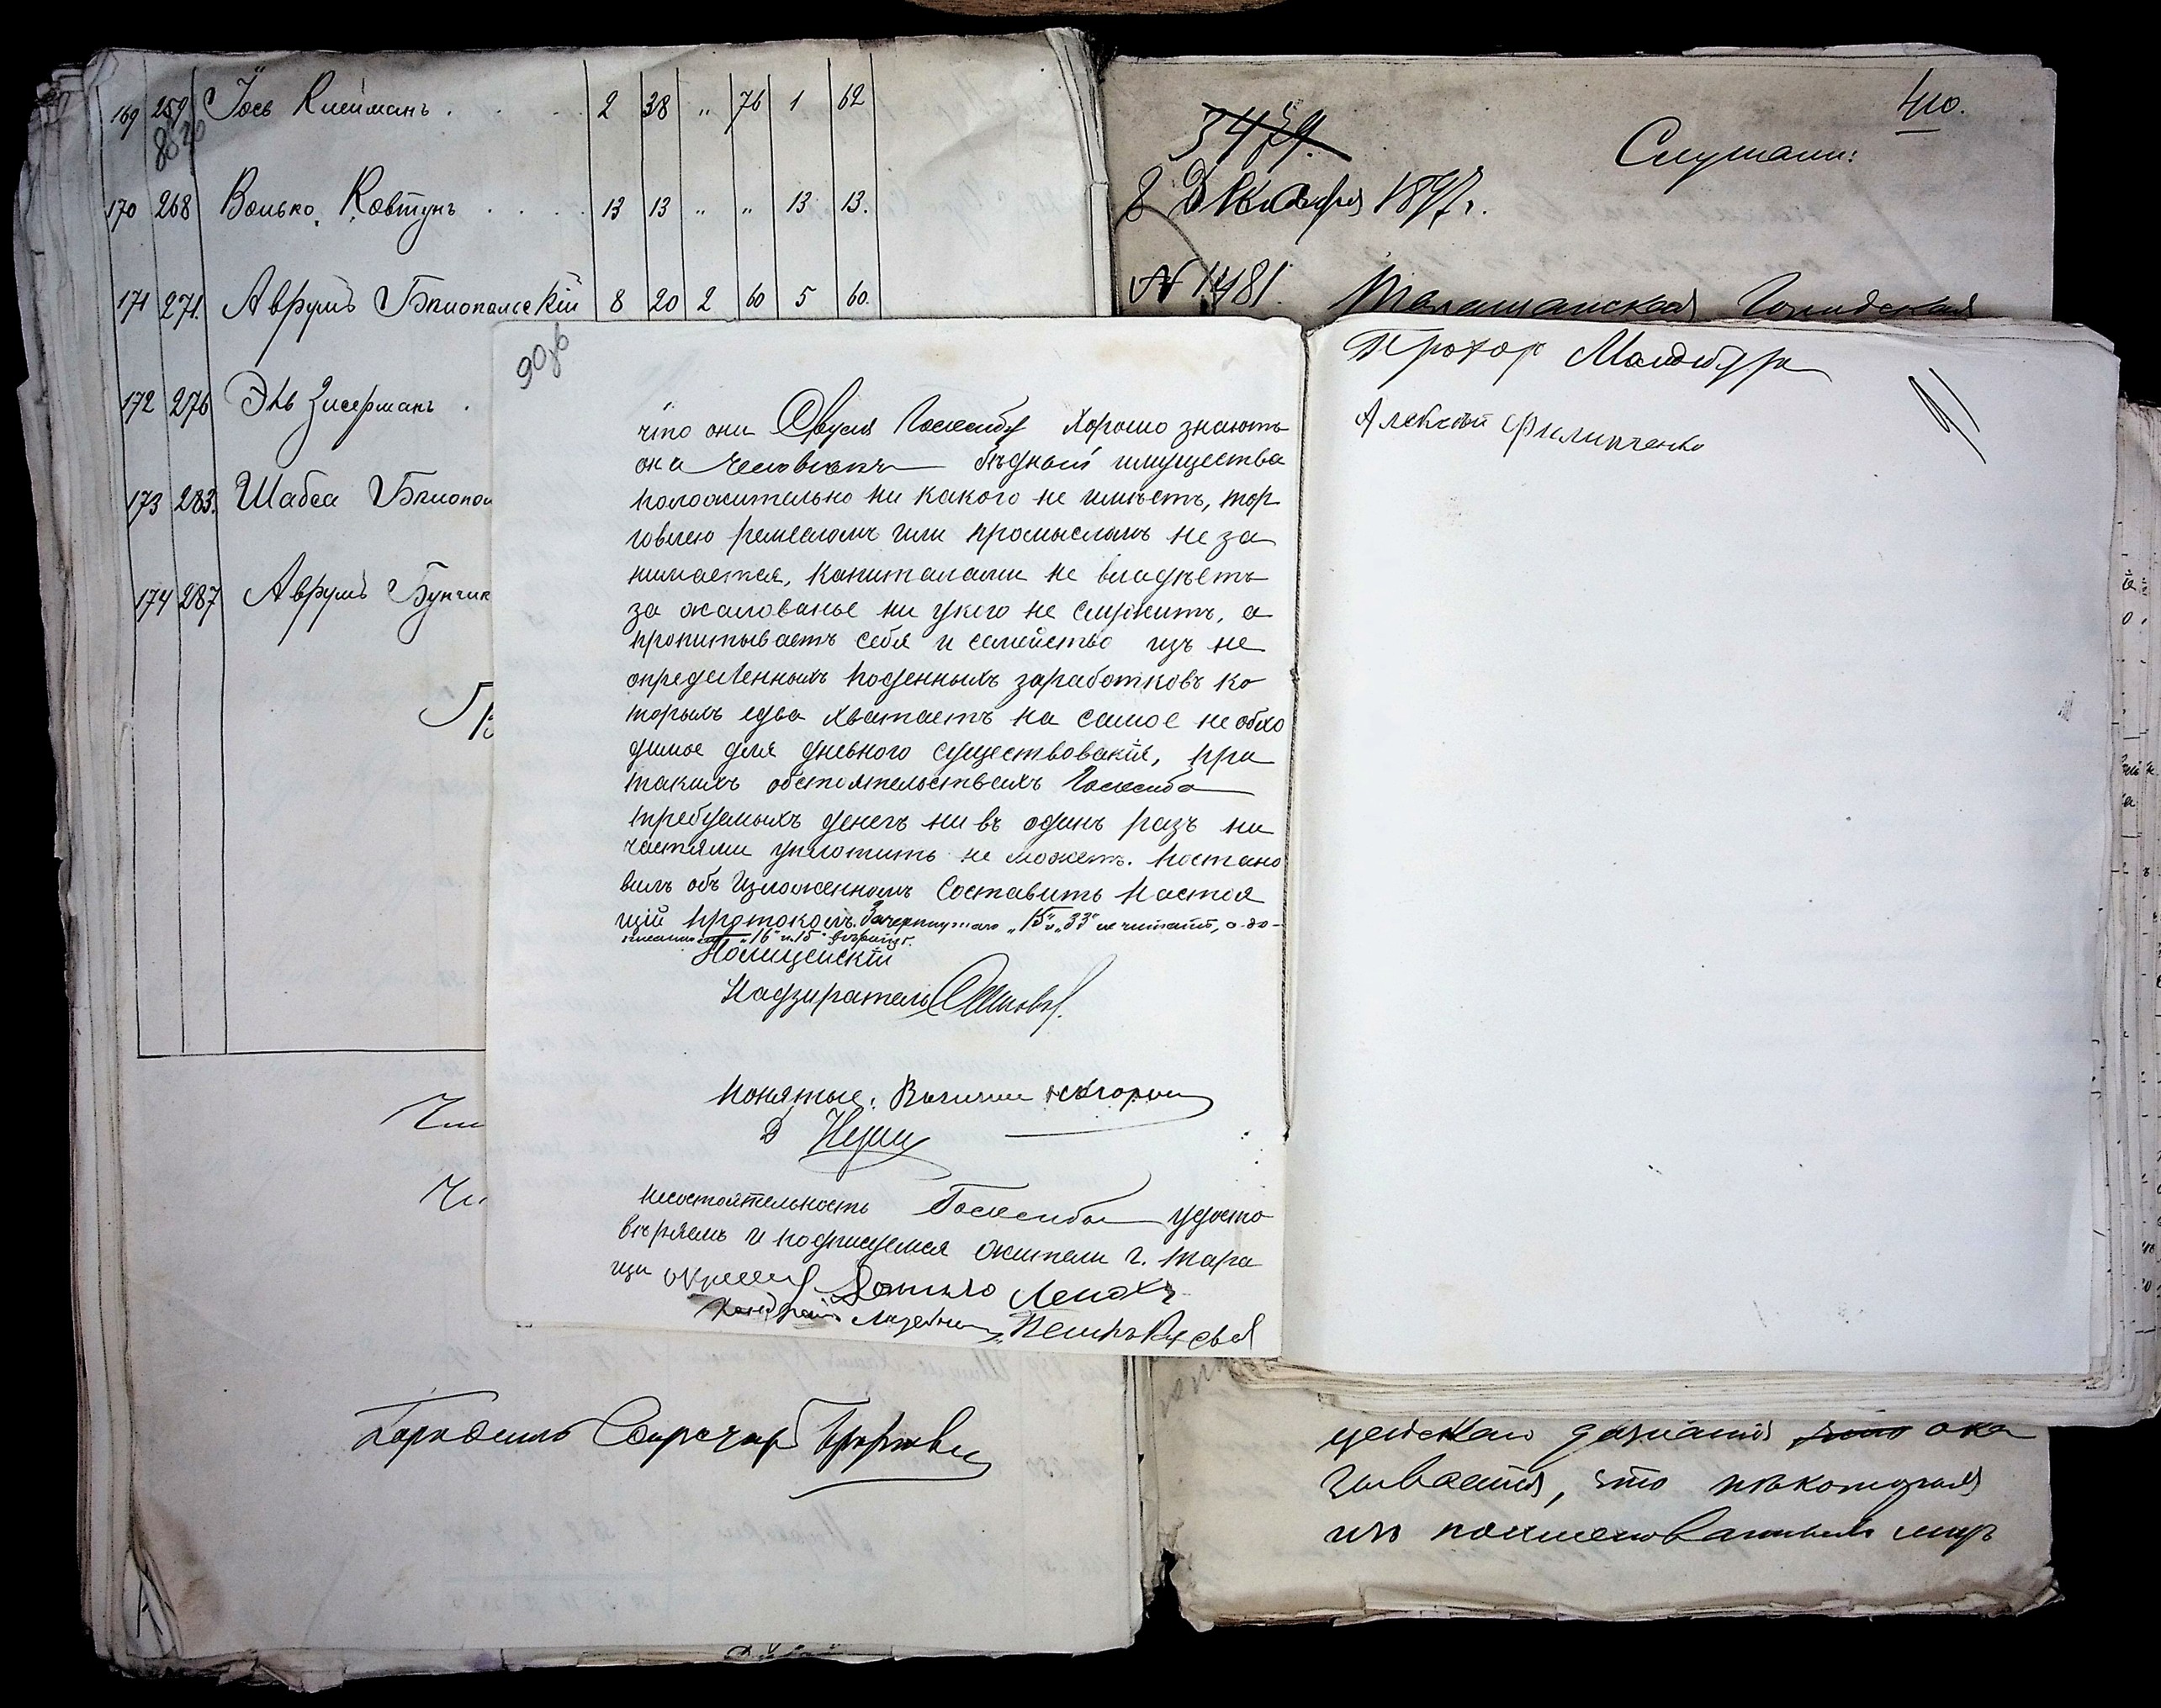 169 259 Іось Клейманъ 2 38 " 76 1 62
170 268 Волько Ковтунъ 13 13 " " 13 13.
171 271. Аврумъ Бялопольскій 8 20 2 60 5 60.
172 276 Эль Зисерманъ
173 283. Шабса Бялопол
174 287 Аврумъ Бунчик
Чи
Чи
410.
Слушали:
8 Декабря 1897 г.
Таращанская Городская
90об
что они Овруля Гослиба хорошо знаютъ
она человекъ бѣдный имущества
положительно ни какого не имѣетъ, тор
говлею ремесломъ или промысломъ не за
нимается, капиталами не владѣетъ
за жалованье ни укого не служитъ, а
пропитываетъ себя и семейство изъ не
определенныхъ поденныхъ заработковъ ко
торыхъ едва хватаетъ на самое необхо
димое для дневного существованія, при
такихъ обстоятельствахъ Гослиба
требуемыхъ денегъ ни въ одинъ разъ ни
частями уплотить не можетъ. Постано
вилъ объ изложенномъ составить настоя
щій протоколъ. Зачеркнутаго „15" и „33" не читать, а до-
писанному „16" и „15" вѣрить.
Полицейскій
Надзиратель
Понятые:
несостоятельность Гослиба удосто
вѣряемъ и подписуемся жители г. Тара
щи Данило
Петръ
Прохор Мандибура
Алексѣй Филипченко
цейскаго дознанія ока
зывается, что некоторыя
изъ поименованныхъ лицъ